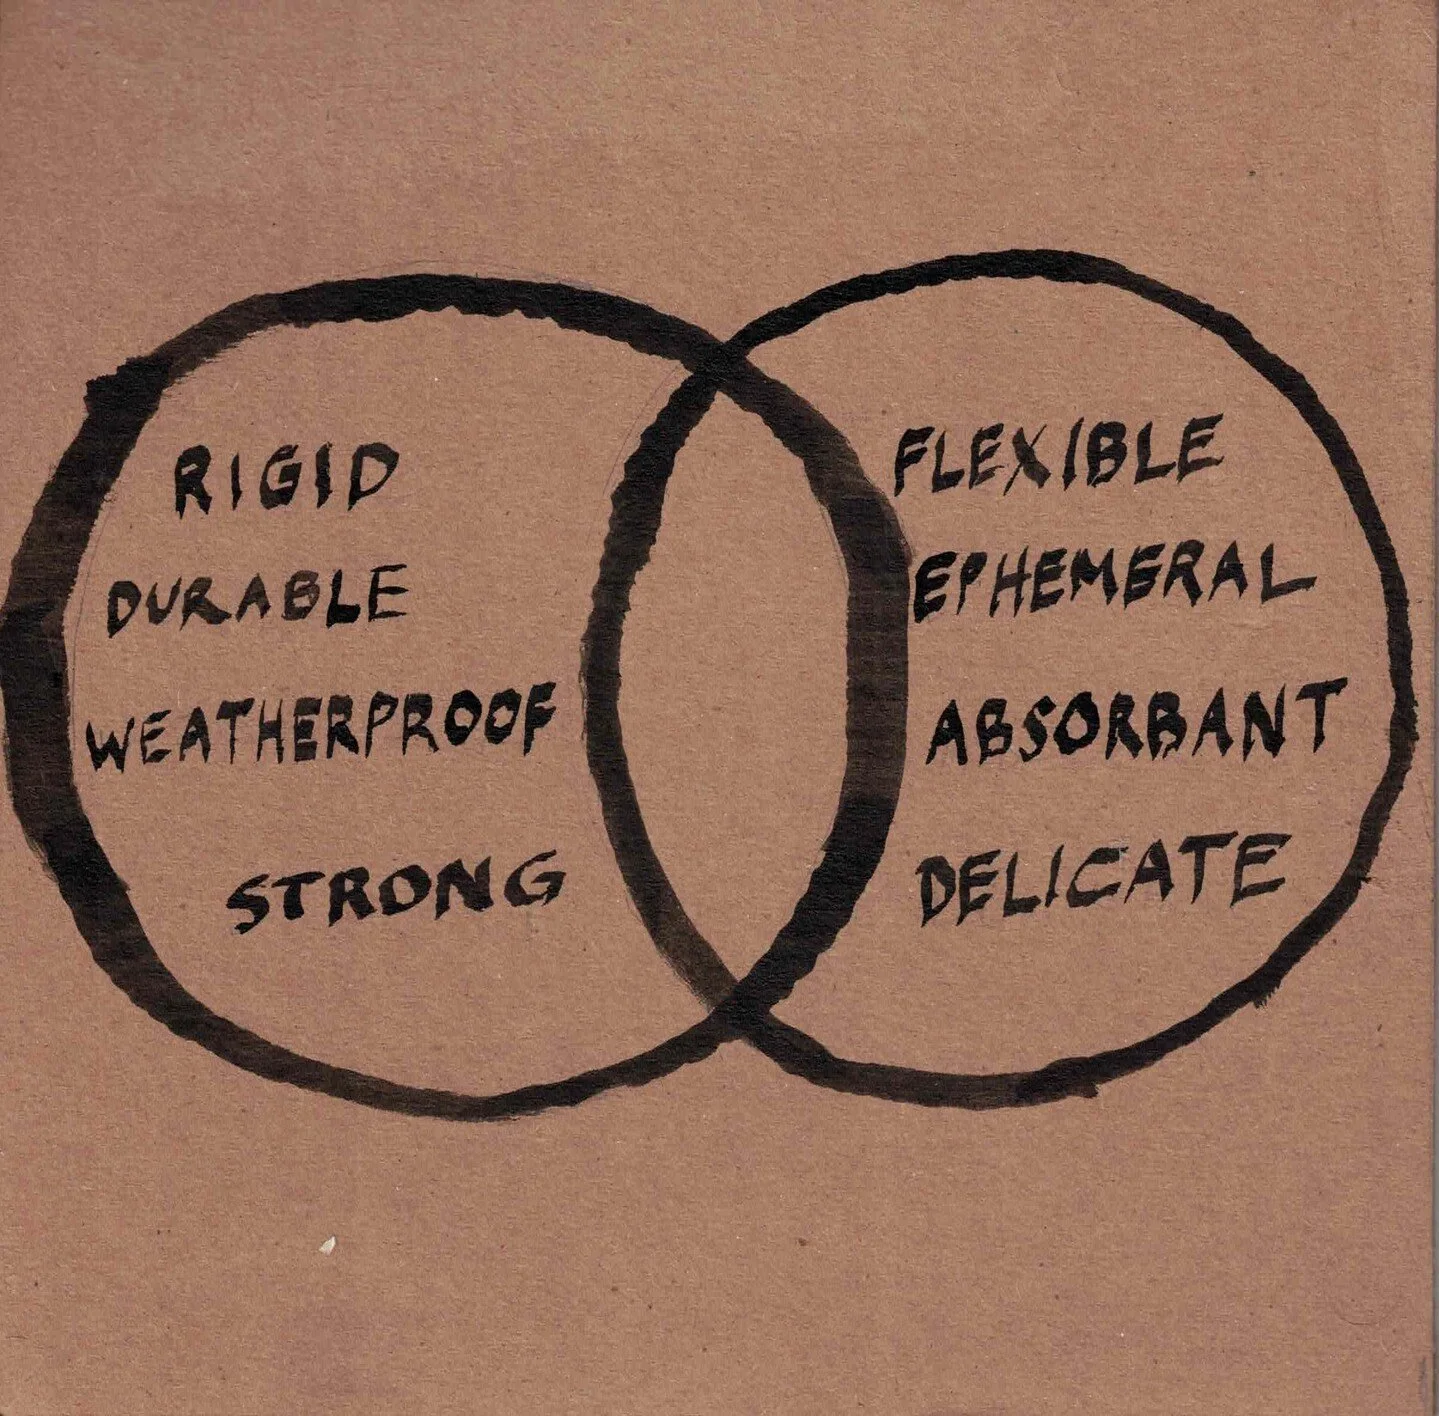 RIGID
DURABLE
WEATHERPROOF
STRONG
FLEXIBLE
EPHEMERAL
ABSORBANT
DELICATE